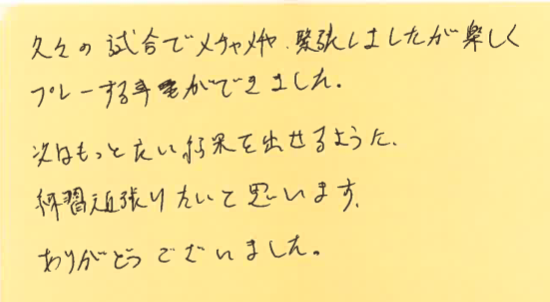 久々の試合でメチャメチャ緊張しましたが楽しく
プレーする事ができました。
次はもっと良い結果を出せるように、
練習頑張りたいと思います。
ありがとうございました。